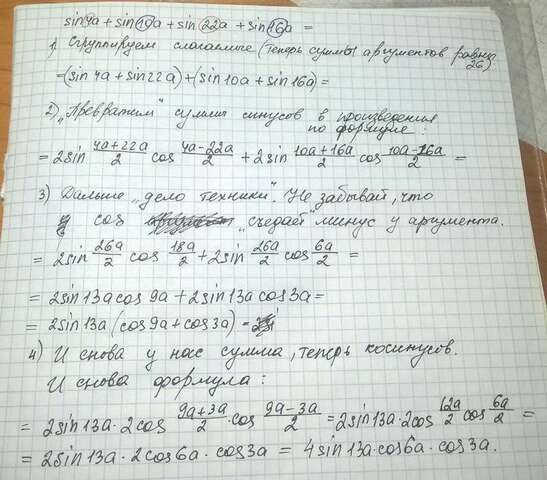 sin4a + sin10a + sin22a + sin16a =
1) Сгруппируем слагаемые (теперь суммы аргументов равны
26).
=(sin 4a + sin22a) + (sin 10a + sin 16a) =
2) "Превратим" суммы синусов в произведения
по формуле:
= 2sin (4a+22a)/2 cos (4a-22a)/2 + 2sin (10a+16a)/2 cos (10a-16a)/2 =
3) Дальше "дело техники". Не забывай, что
cos "съедает" минус у аргумента.
= 2sin 26a/2 cos 18a/2 + 2sin 26a/2 cos 6a/2 =
= 2sin 13a cos 9a + 2sin 13a cos 3a =
= 2sin 13a (cos 9a + cos 3a) =
4) И снова у нас сумма, теперь косинусов.
И снова формула:
= 2sin 13a · 2cos (9a+3a)/2 · cos (9a-3a)/2 = 2sin 13a · 2cos 12a/2 cos 6a/2 =
= 2sin 13a · 2cos 6a · cos 3a = 4 sin 13a · cos 6a · cos 3a.